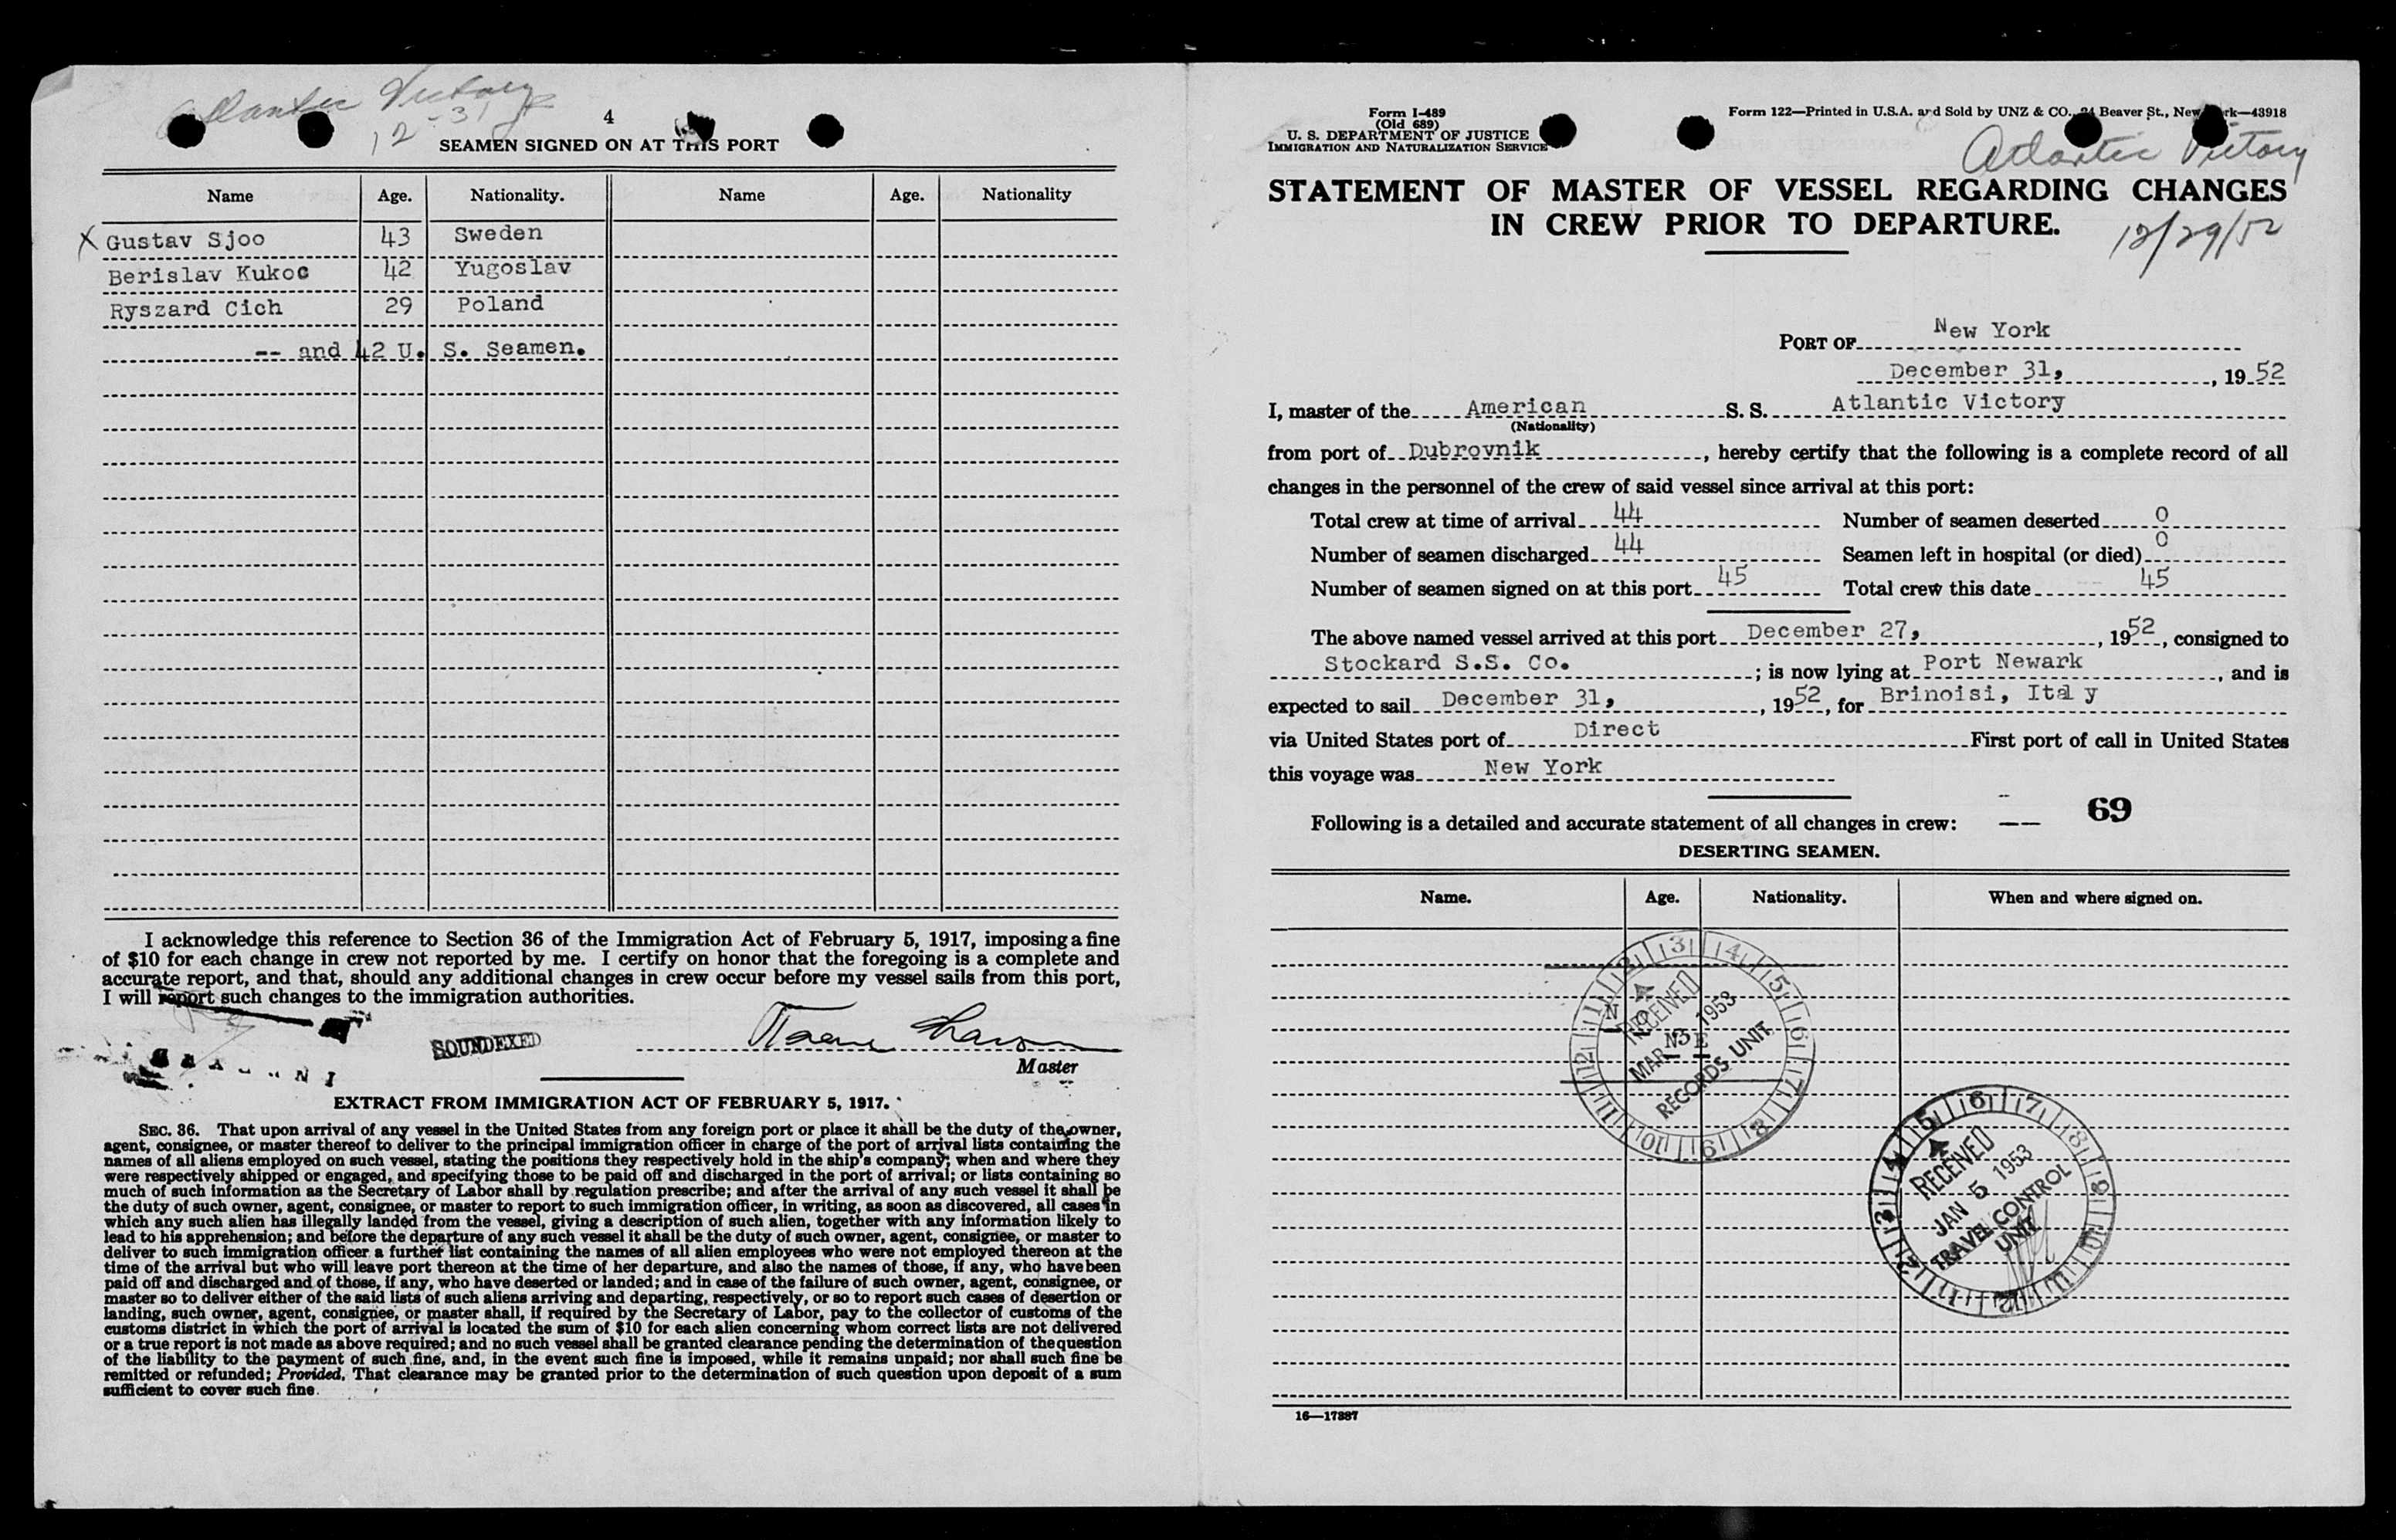 Atlantic Victory
12-31
4
SEAMEN SIGNED ON AT THIS PORT
Name Age. Nationality. Name Age. Nationality
X Gustav Sjoo 43 Sweden
Berislav Kukoc 42 Yugoslav
Ryszard Cich 29 Poland
-- and 42 U. S. Seamen.
I acknowledge this reference to Section 36 of the Immigration Act of February 5, 1917, imposing a fine
of $10 for each change in crew not reported by me. I certify on honor that the foregoing is a complete and
accurate report, and that, should any additional changes in crew occur before my vessel sails from this port,
I will report such changes to the immigration authorities.
SOUNDEXED
Master
EXTRACT FROM IMMIGRATION ACT OF FEBRUARY 5, 1917.
SEC. 36. That upon arrival of any vessel in the United States from any foreign port or place it shall be the duty of the owner,
agent, consignee, or master thereof to deliver to the principal immigration officer in charge of the port of arrival lists containing the
names of all aliens employed on such vessel, stating the positions they respectively hold in the ship's company; when and where they
were respectively shipped or engaged, and specifying those to be paid off and discharged in the port of arrival; or lists containing so
much of such information as the Secretary of Labor shall by regulation prescribe; and after the arrival of any such vessel it shall be
the duty of such owner, agent, consignee, or master to report to such immigration officer, in writing, as soon as discovered, all cases in
which any such alien has illegally landed from the vessel, giving a description of such alien, together with any information likely to
lead to his apprehension; and before the departure of any such vessel it shall be the duty of such owner, agent, consignee, or master to
deliver to such immigration officer a further list containing the names of all alien employees who were not employed thereon at the
time of the arrival but who will leave port thereon at the time of her departure, and also the names of those, if any, who have been
paid off and discharged and of those, if any, who have deserted or landed; and in case of the failure of such owner, agent, consignee, or
master so to deliver either of the said lists of such aliens arriving and departing, respectively, or so to report such cases of desertion or
landing, such owner, agent, consignee, or master shall, if required by the Secretary of Labor, pay to the collector of customs of the
customs district in which the port of arrival is located the sum of $10 for each alien concerning whom correct lists are not delivered
or a true report is not made as above required; and no such vessel shall be granted clearance pending the determination of the question
of the liability to the payment of such fine, and, in the event such fine is imposed, while it remains unpaid; nor shall such fine be
remitted or refunded; Provided, That clearance may be granted prior to the determination of such question upon deposit of a sum
sufficient to cover such fine.
Form I-489
(Old 689)
U. S. DEPARTMENT OF JUSTICE
IMMIGRATION AND NATURALIZATION SERVICE
Form 122—Printed in U.S.A. and Sold by UNZ & CO., 24 Beaver St., New York—43918
Atlantic Victory
STATEMENT OF MASTER OF VESSEL REGARDING CHANGES
IN CREW PRIOR TO DEPARTURE.
12/29/52
PORT OF New York
December 31, , 19 52
I, master of the American S. S. Atlantic Victory
(Nationality)
from port of Dubrovnik , hereby certify that the following is a complete record of all
changes in the personnel of the crew of said vessel since arrival at this port:
Total crew at time of arrival 44 Number of seamen deserted 0
Number of seamen discharged 44 Seamen left in hospital (or died) 0
Number of seamen signed on at this port 45 Total crew this date 45
The above named vessel arrived at this port December 27, , 1952, consigned to
Stockard S.S. Co. ; is now lying at Port Newark , and is
expected to sail December 31, , 1952, for Brinoisi, Italy
via United States port of Direct First port of call in United States
this voyage was New York
69
Following is a detailed and accurate statement of all changes in crew: --
DESERTING SEAMEN.
Name. Age. Nationality. When and where signed on.
N O N E
RECEIVED
MAR 3 1953
RECORDS UNIT
RECEIVED
JAN 5 1953
TRAVEL CONTROL
UNIT
16—17887